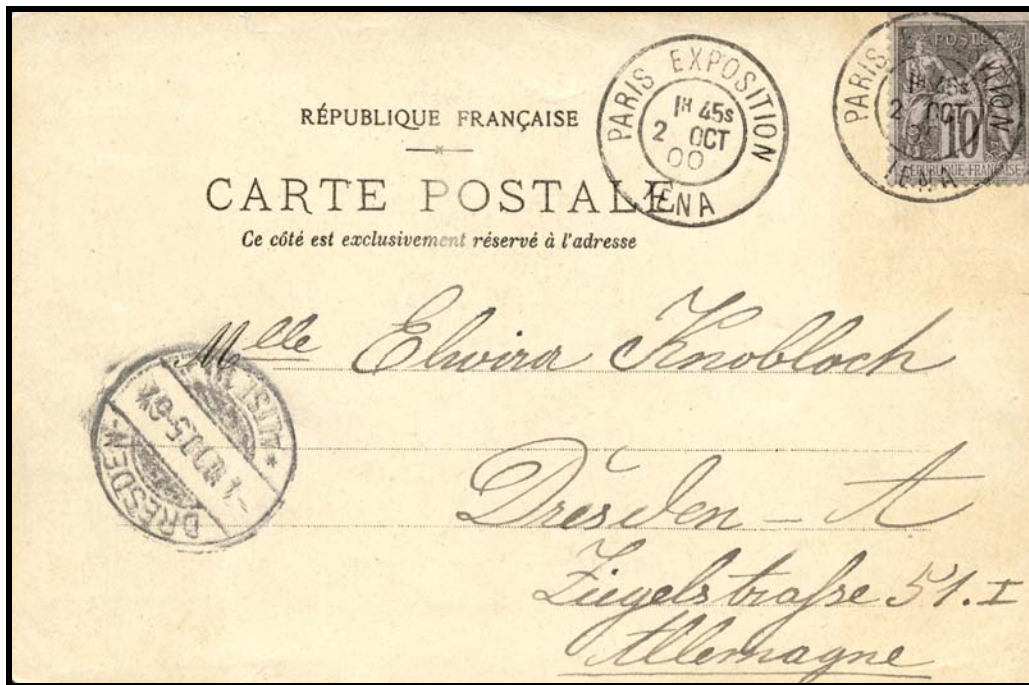 RÉPUBLIQUE FRANÇAISE
CARTE POSTALE
Ce côté est exclusivement réservé à l'adresse
PARIS EXPOSITION
1H 45s
2 OCT
00
IENA
PARIS EXPOSITION
1H 45s
2 OCT
00
IENA
POSTES
10
RÉPUBLIQUE FRANÇAISE
Mlle Elwira Knobloch
Dresden - A
Ziegelstraße 51. I
Allemagne
DRESDEN-